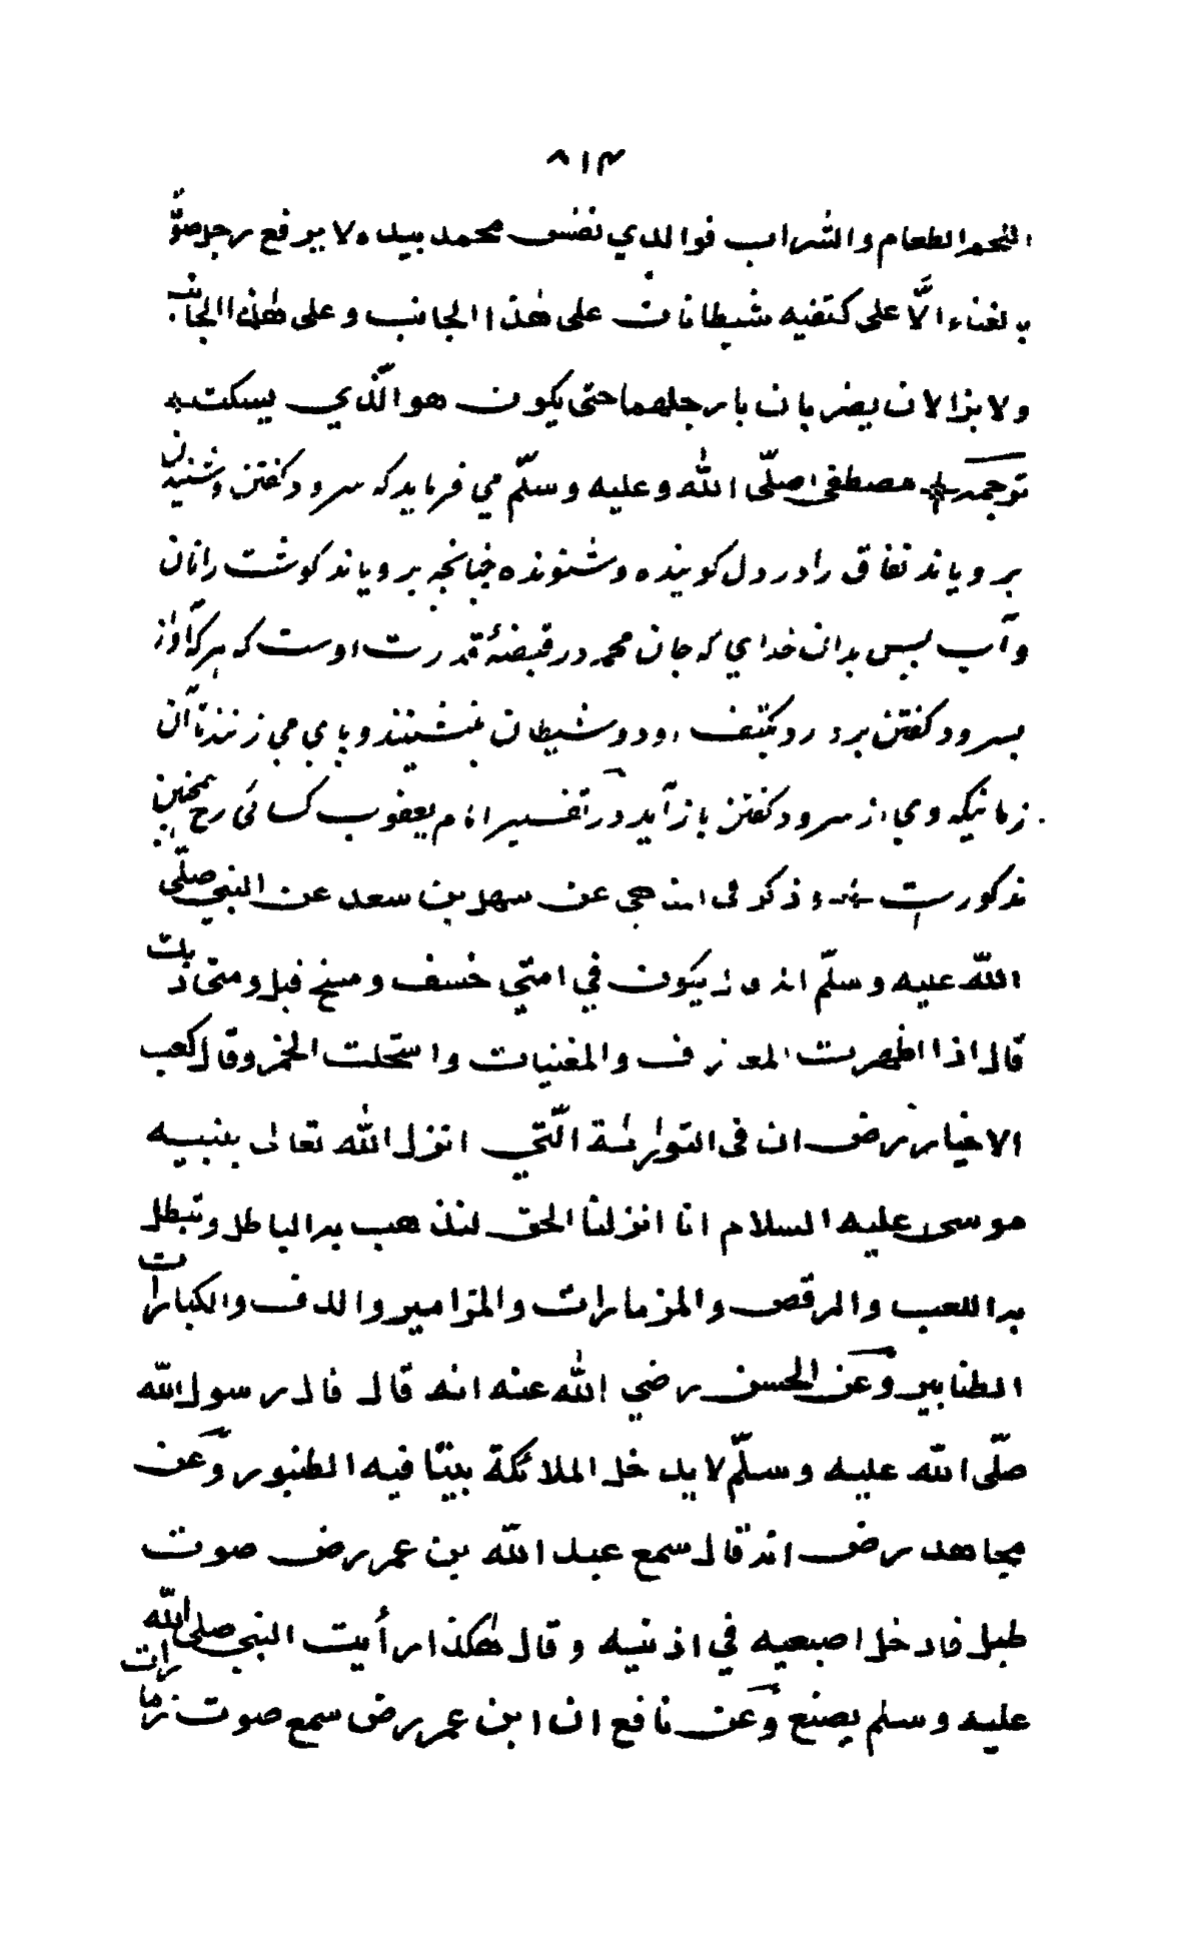 ۸۱۴
اللحم الطعام والشراب فوالذي نفس محمد بيده لا يرفع رجل صوته
بغناء الّا على كتفيه شيطانان على هٰذا الجانب وعلى هٰذا الجانب
ولا يزالان يضربان بارجلهما حتى يكون هو الّذي يسكت
ترجمه مصطفى صلّى الله وعليه وسلّم مي فرمايد كه سرود كفتن وشنيدن
بروياند نفاق را در دل كوينده وشنونده چنانچه بروياند كوشت را نان
وآب پس بدان خداي كه جان محمد در قبضهٔ قدرت اوست كه هركه آواز
بسرود كفتن بردارد بكتف او دو شيطان بنشينند وپاي مي زنند تا آن
زمانيكه وي از سرود كفتن باز آيد در تفسير امام يعقوب كسائي رح همچنين
مذكورست وذكر فى عن سهل بن سعد عن النبي صلّى
الله عليه وسلّم انه يكون في امتي خسف ومسخ قيل ومتى ذلك
قال اذا اظهرت المعازف والمغنيات واستحلت الخمر وقال كعب
الاخبار رض ان فى التوارئة الّتي انزل الله تعالى بنبيه
موسى عليه السلام انا انزلنا الحق لنذهب به الباطل وتبطل
به اللعب والرقص والمزمارات والمزامير والدف والكبارات
الطنابير وعن الحسن رضي الله عنه انه قال قال رسول الله
صلّى الله عليه وسلّم لا يدخل الملائكة بيتا فيه الطنبور وعن
مجاهد رض انه قال سمع عبد الله بن عمر رض صوت
طبل فادخل اصبعيه في اذنيه وقال هٰكذا رأيت النبي صلى الله
عليه وسلم يصنع وعن نافع ان ابن عمر رض سمع صوت زمارات